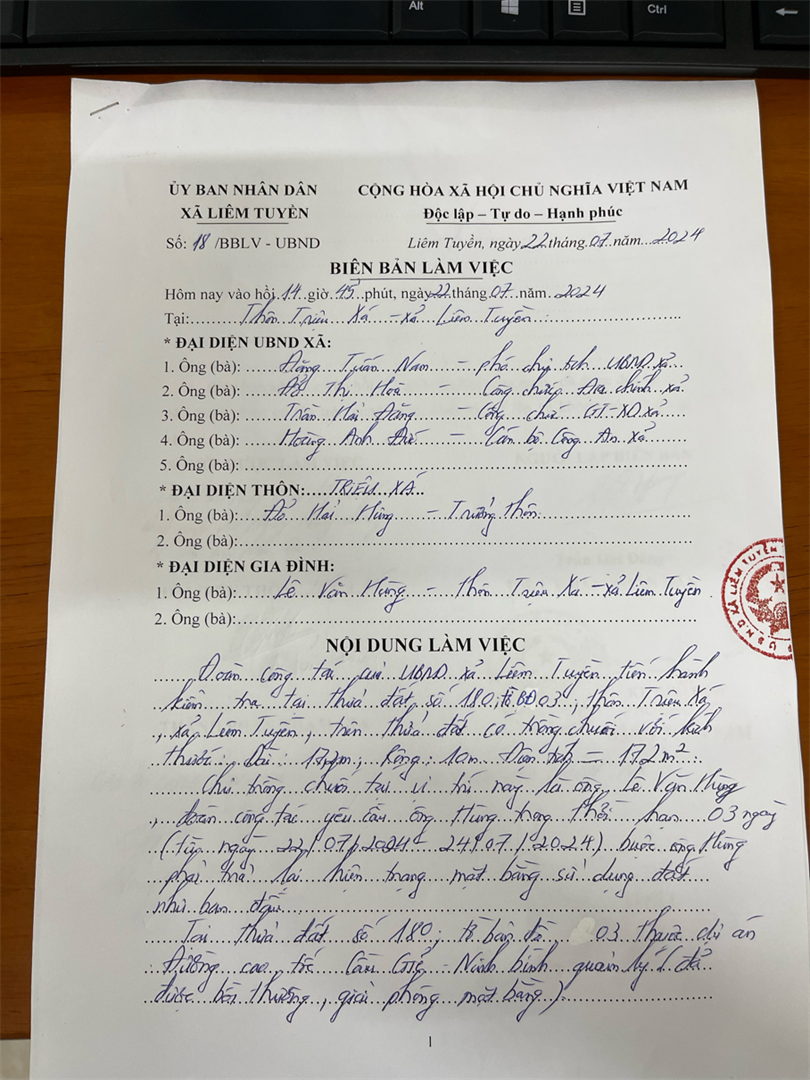 Alt
Ctrl
ỦY BAN NHÂN DÂN
XÃ LIÊM TUYỀN
CỘNG HÒA XÃ HỘI CHỦ NGHĨA VIỆT NAM
Độc lập – Tự do – Hạnh phúc
Số: 18 /BBLV - UBND
Liêm Tuyền, ngày 22 tháng 07 năm 2024
BIÊN BẢN LÀM VIỆC
Hôm nay vào hồi 14 giờ 45 phút, ngày 22 tháng 07 năm 2024
Tại: Thôn Triệu Xá - xã Liêm Tuyền
* ĐẠI DIỆN UBND XÃ:
1. Ông (bà): Đặng Tuấn Nam - phó chủ tịch UBND xã
2. Ông (bà): Đỗ Thị Hoà - Công chức Địa chính xã
3. Ông (bà): Trần Hải Đăng - Công chức GT-XD xã
4. Ông (bà): Hoàng Anh Đức - Cán bộ Công An xã
5. Ông (bà):
* ĐẠI DIỆN THÔN: TRIỆU XÁ
1. Ông (bà): Đỗ Hải Hùng - Trưởng thôn
2. Ông (bà):
* ĐẠI DIỆN GIA ĐÌNH:
1. Ông (bà): Lê Văn Hùng - thôn Triệu Xá - xã Liêm Tuyền
2. Ông (bà):
NỘI DUNG LÀM VIỆC
Đoàn công tác của UBND xã Liêm Tuyền tiến hành
kiểm tra tại thửa đất số 180; tờ BĐ 03; thôn Triệu Xá
, xã Liêm Tuyền, trên thửa đất có trồng chuối với kích
thước: Dài: 17,2m; Rộng: 10m Diện tích = 172 m²
Chủ trồng chuối tại vị trí này là ông Lê Văn Hùng
, đoàn công tác yêu cầu ông Hùng trong thời hạn 03 ngày
(từ ngày 22/07/2024 - 24/07/2024) buộc ông Hùng
phải trả lại hiện trạng mặt bằng sử dụng đất
như ban đầu
Tại thửa đất số 180; tờ bản đồ 03 thuộc dự án
Đường cao tốc Cầu Giẽ - Ninh bình quản lý (đã
được bồi thường, giải phóng mặt bằng)
U.B.N.D XÃ LIÊM TUYỀN
1